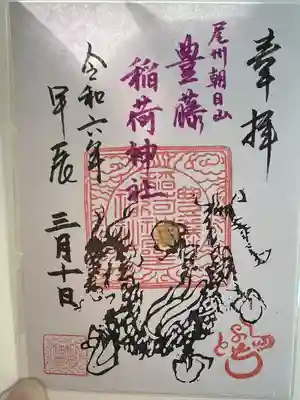 奉拝
尾州朝日山
豊藤
稲荷神社
令和六年
甲辰 三月十日